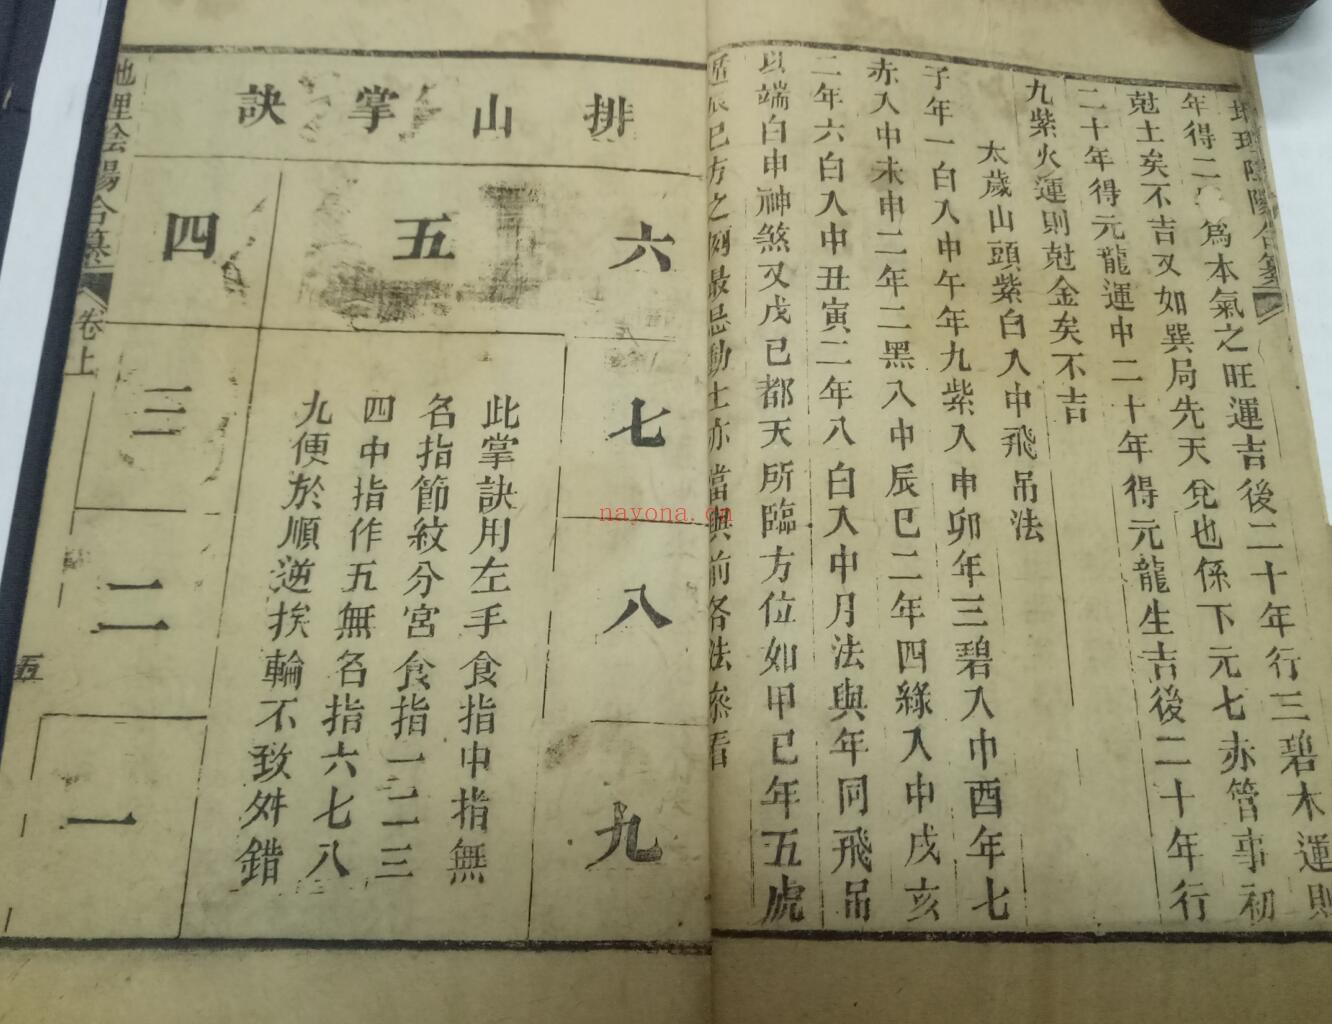 年得二
為本氣之旺運吉後二十年行三碧木運則
尅土矣不吉又如巽局先天兌也係下元七赤管事初
二十年得元龍運中二十年得元龍生吉後二十年行
九紫火運則尅金矣不吉
太歲山頭紫白入中飛吊法
子年一白入中午年九紫入中卯年三碧入中酉年七
赤入中未申二年二黑入中辰巳二年四綠入中戌亥
二年六白入中丑寅二年八白入中月法與年同飛吊
以端白中神煞又戊己都天所臨方位如甲己年五虎
遁辰巳方之例最忌動土亦當與前各法參看
地理陰陽合纂
卷上
五
排山掌訣
六
五
四
七
三
八
二
九
一
此掌訣用左手食指中指無
名指節紋分宮食指一二三
四中指作五無名指六七八
九便於順逆挨輪不致舛錯
nayona.cn